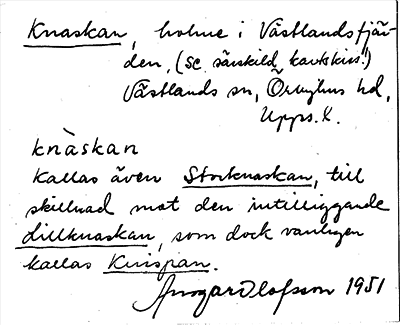 Knaskan, holme i Västlandsfjär-
den, (se särskild kartskiss!)
Västlands sn, Örbyhus hd,
Upps. l.
knàskan
kallas även Storknaskan, till
skillnad mot den intilliggande
Lillknaskan, som dock vanligen
kallas Kuspan.
Ansgar Olofsson 1951